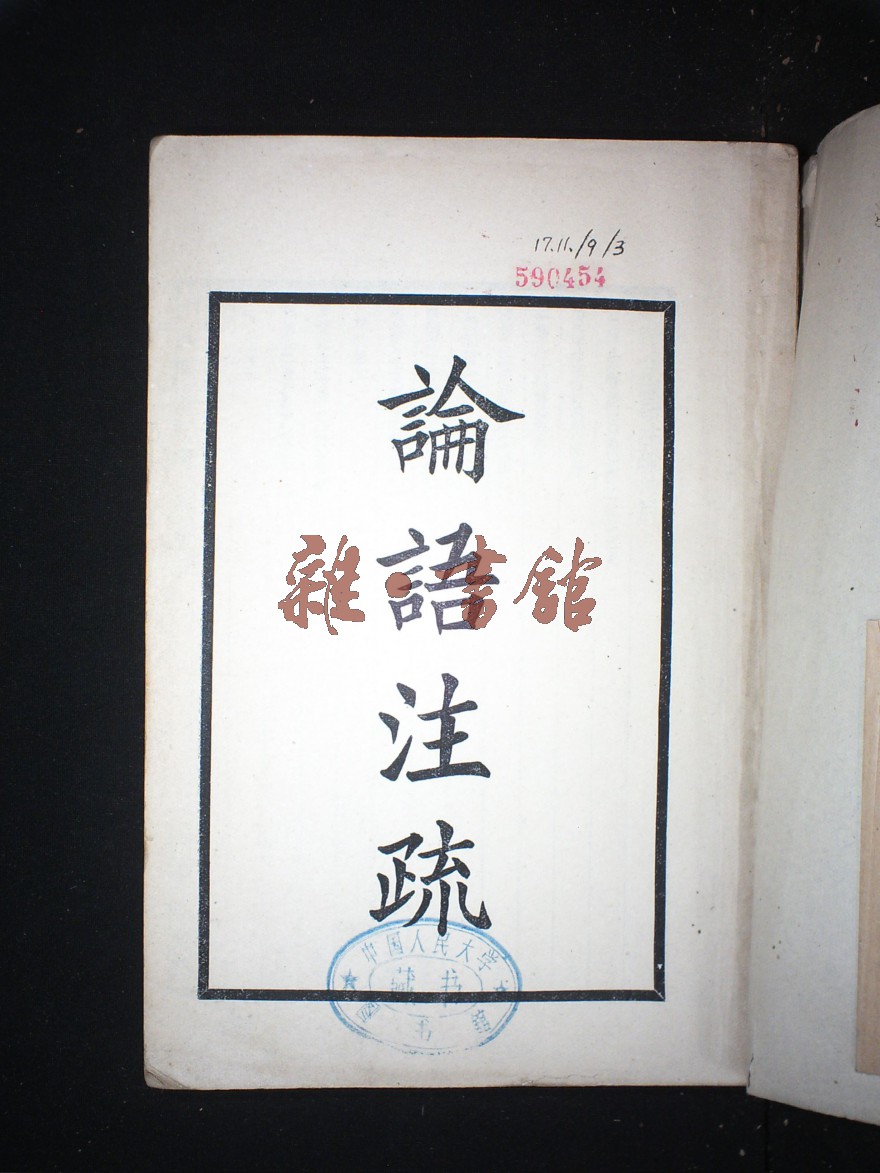 17.11./9/3
590454
論語注疏
雜·書館
中国人民大学
藏书
图书馆